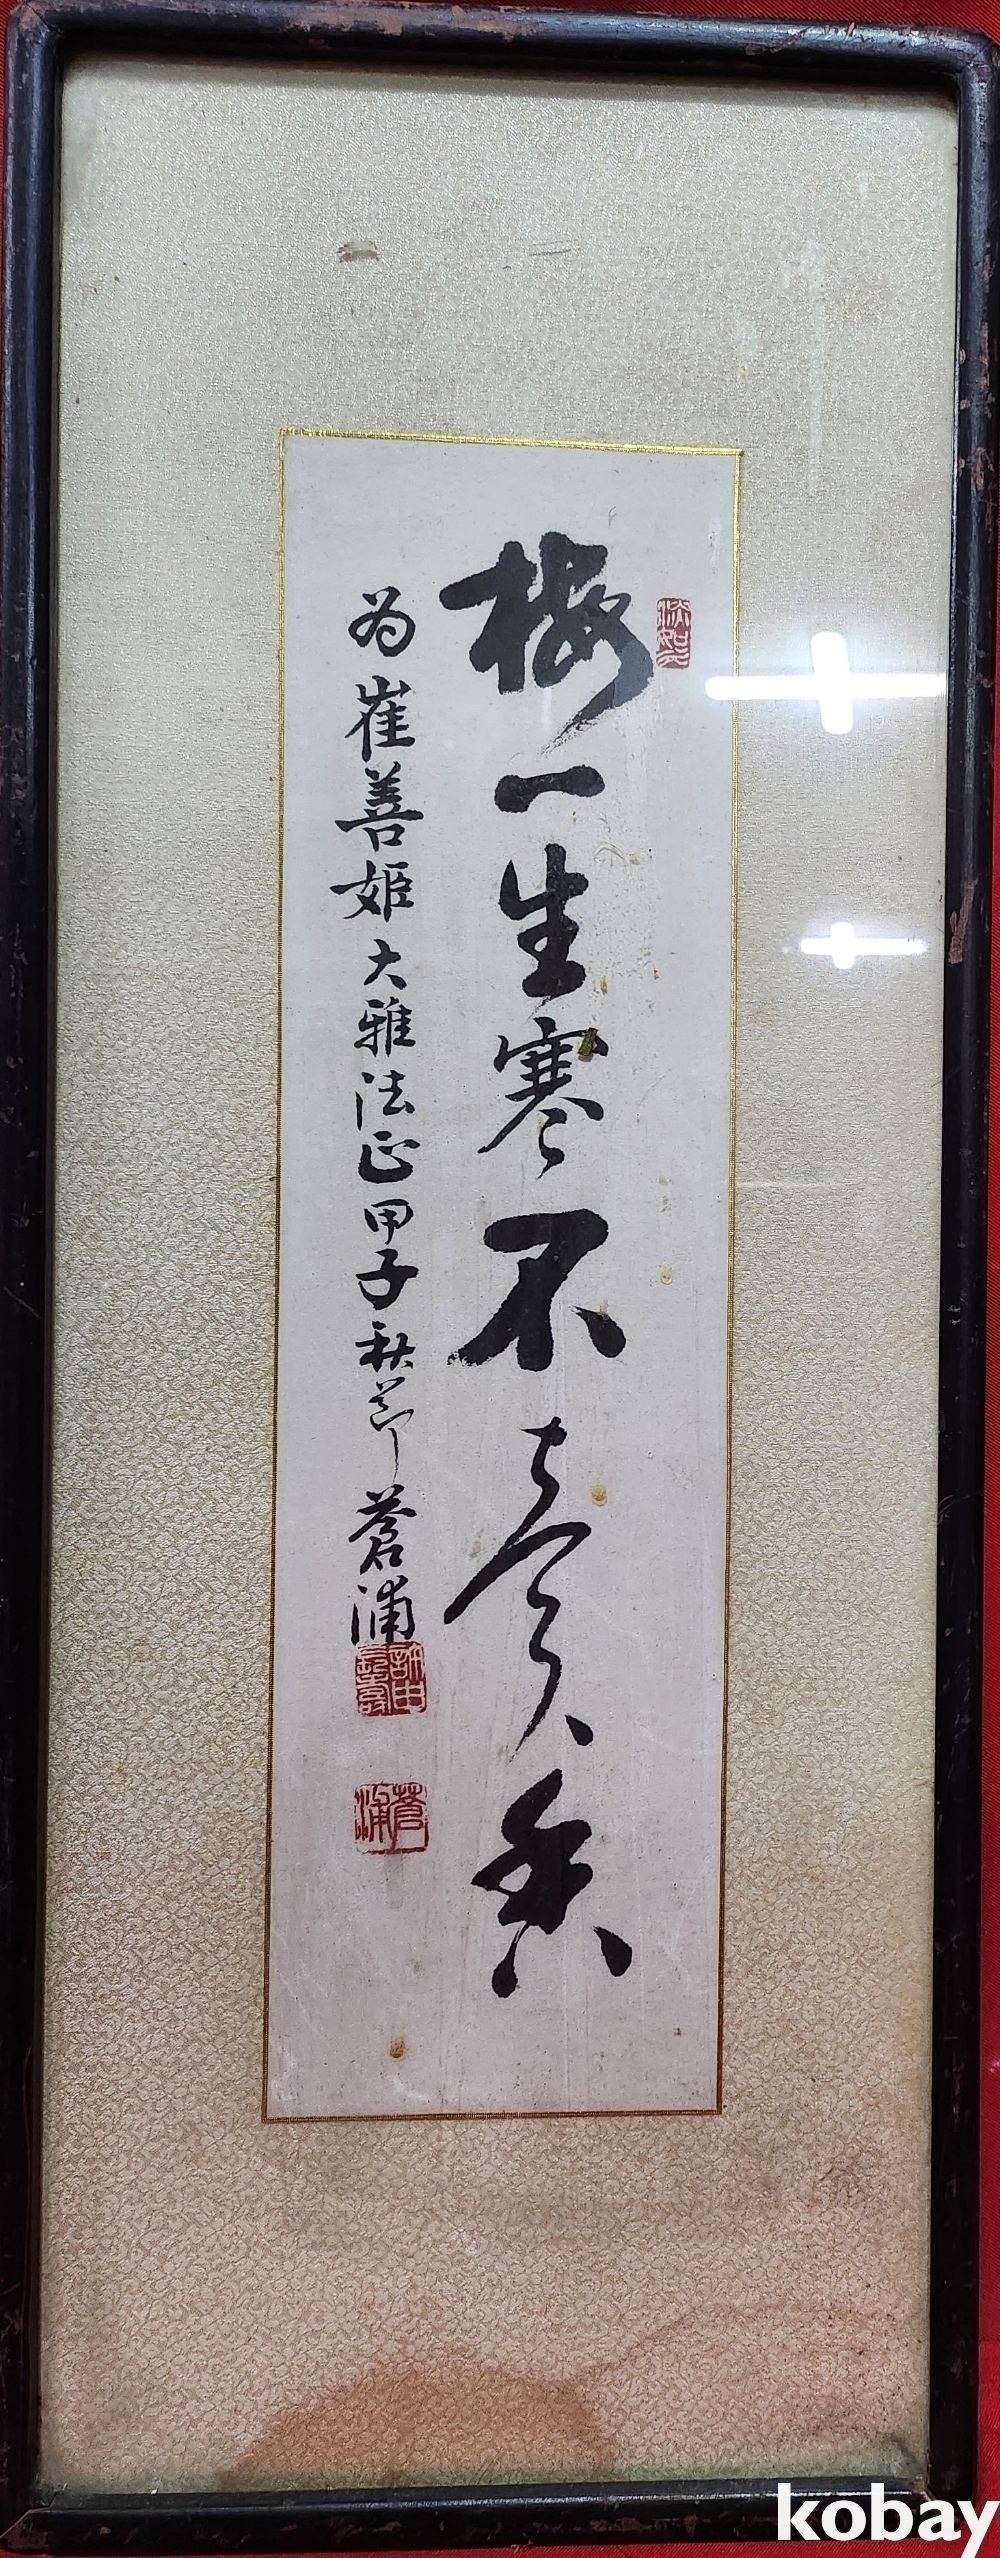 梅一生寒不賣香
为崔善姬大雅法正甲子秋节蒼浦
蒼浦
kobay